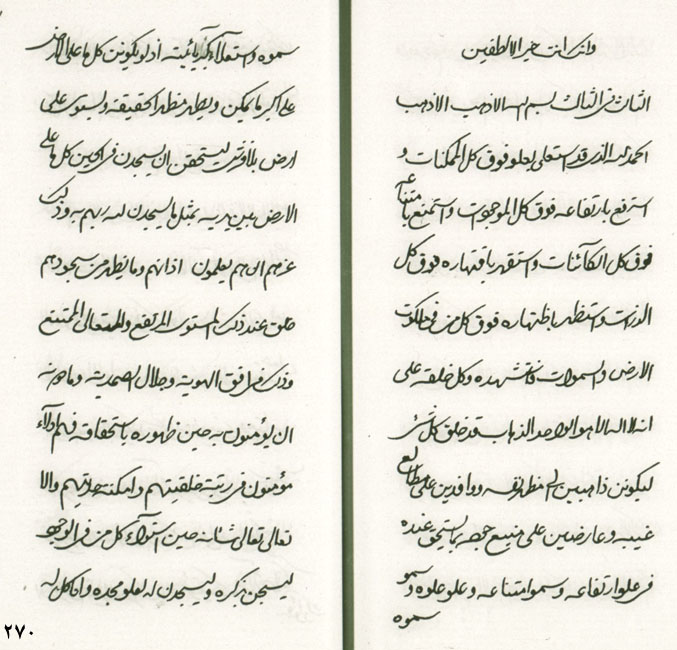 وانك انت خير الالطفين
الثالث فى الثالث بسم الله الاذهب الاذهب
الحمد لله الذى قد استعلى بعلوه فوق كل الممكنات و
استرفع بارتفاعه فوق كل الموجودات واستمنع بامتناعه
فوق كل الكائنات واستقهر باقتهاره فوق كل
الذرات واستظهر باظتهاره فوق كل من فى ملكوت
الارض والسموات فاستشهده وكل خلقه على
انه لا اله الا هو الواحد الذهاب قد خلق كل شئ
ليكونن ذاهبين الى مظهر نفسه ووافدين على مطالع
غيبه وعارضين على منيع حجته بما يستحق عنده
فى علو ارتفاعه وسمو امتناعه وعلو علوه وسمو
سموه
سموه واستعلاء كبريائيته اذ لو يكونن كل ما على الارض
على اكبر ما يمكن ويظهر مظهر الحقيقة ويستوى على
ارض بلا فرش ليستحقن ان يسجدن فى الحين كل ما على
الارض بين يديه بمثل ما يسجدن لله ربهم به وذلك
عزهم ان هم يعلمون اذ انهم وما يظهر من سجودهم
خلق عند ذلك المستوى المرتفع والمتعالى الممتنع
وذلك فى افق الهوية وجلال الصمدية وما دونه
ان يؤمنون به حين ظهوره باستحقاقه فهم ادلاء
مؤمنون فى رتبة خلقيتهم وامكنة حديتهم والا
تعالى تعالى شانه حين استواء كل من فى الوجود
ليسبحن بذكره وليسجدن له لعلو مجده وانا كل له
٢٧٠